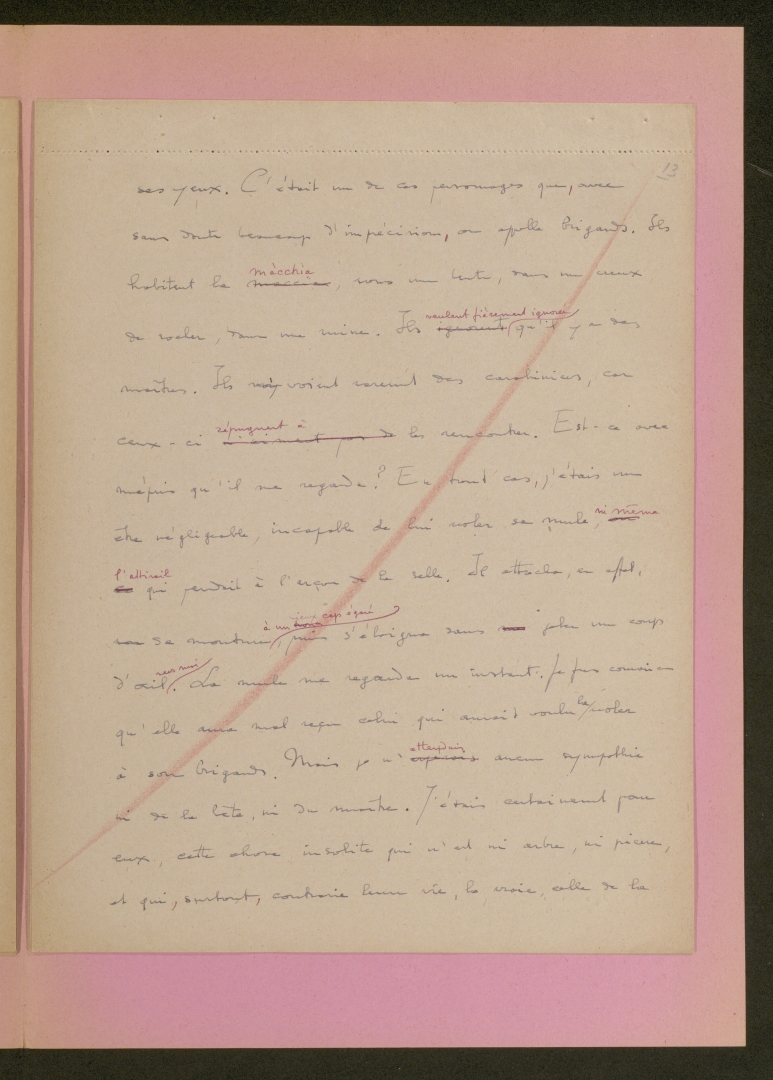 13
ses yeux. C'était un de ces personnages que, avec
sans doute beaucoup d'imprécision, on appelle brigands. Ils
màcchia
habitent la macchia, sous une tente, dans un creux
veulent fièrement ignorer
de rocher, dans une ruine. Ils ignorent qu'il y a des
maîtres. Ils voient rarement des carabiniers, car
répugnent à
ceux-ci n'aiment pas de les rencontrer. Est-ce avec
mépris qu'il me regarda? En tout cas, j'étais un
être négligeable, incapable de lui voler sa mule, ni même
l'attirail
ce qui pendait à l'arçon de la selle. Il attacha, en effet,
à un vieux cep égaré
sa monture, puis s'éloigna sans jeter un coup
vers moi
d'œil. La mule me regarda un instant. Je fus convaincu
qu'elle aura mal reçu celui qui aurait voulu la voler
attendais
à son brigand. Mais je n'espérais aucune sympathie
ni de la bête, ni du maître. J'étais certainement pour
eux, cette chose insolite qui n'est ni arbre, ni pierre,
et qui, surtout, contrarie leur vie, la vraie, celle de la